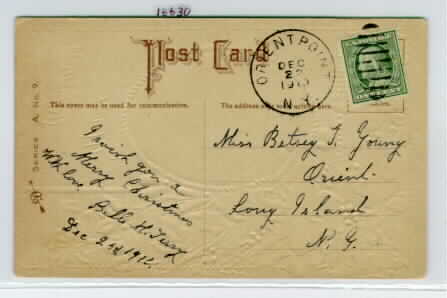 16630
Post Card
ORIENT POINT
DEC
22
N.Y.
This space may be used for communication.
The address
Series A, No. 9.
I wish you a
Merry Christmas
With love
Belle H. Terry
Dec 2nd 191
Miss Betsey T. Young
Orient
Long Island
N.Y.